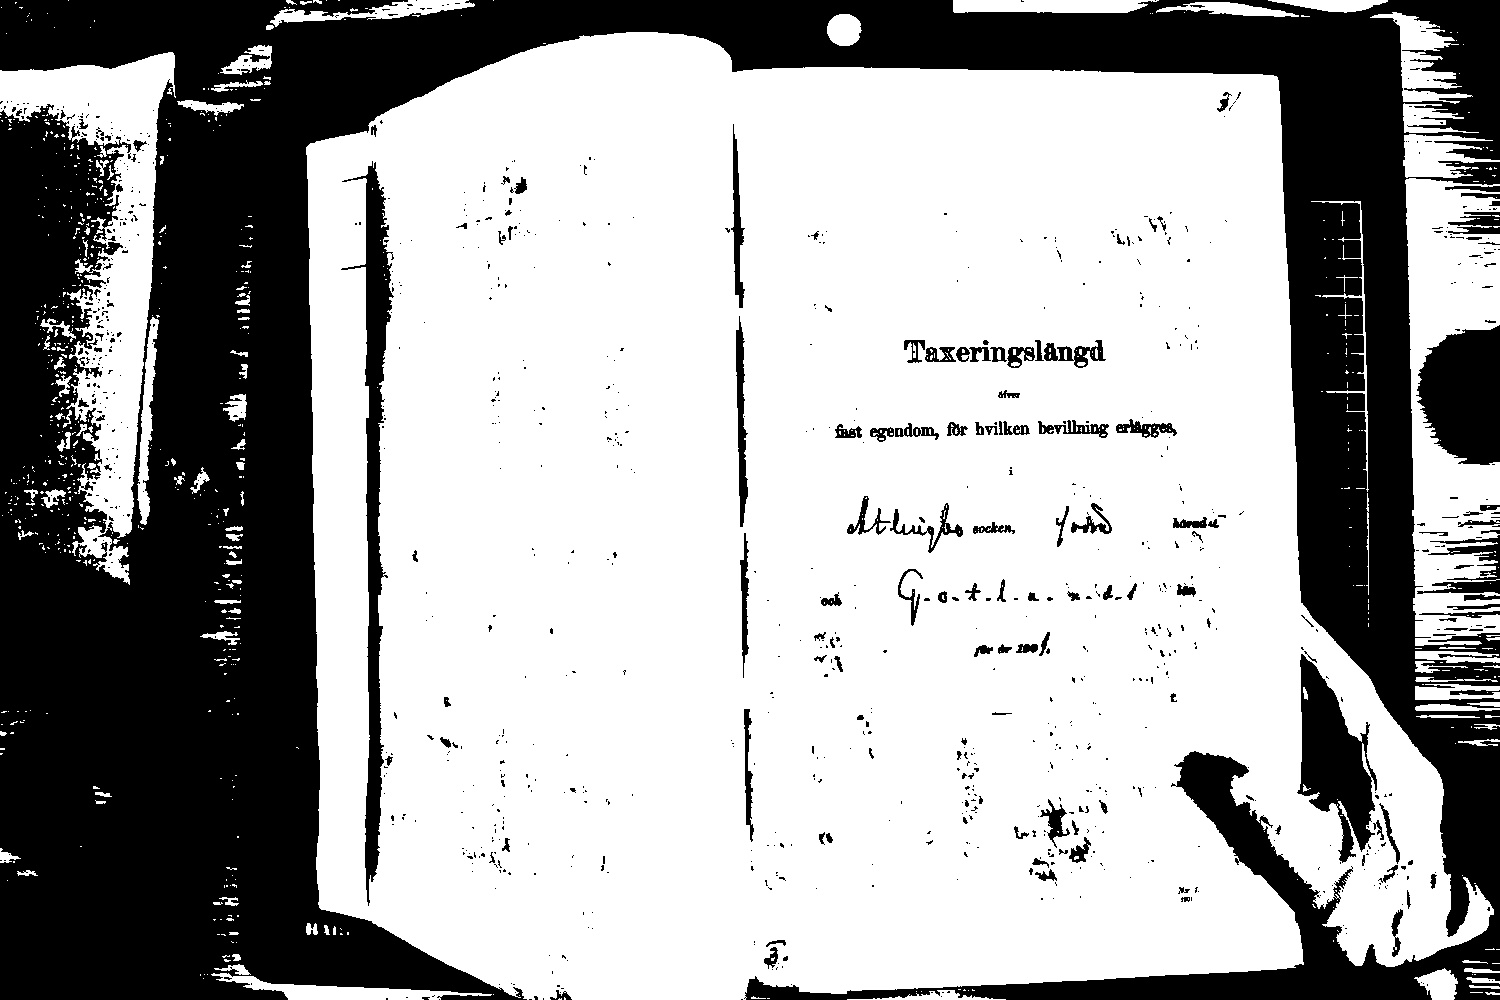 3/
Taxeringslängd
öfver
fast egendom, för hvilken bevillning erlägges,
i
Atlingbo socken, härad
och G-o-t-l-a-n-d-s län
för år 1901.
Nr 1.
1901
3.